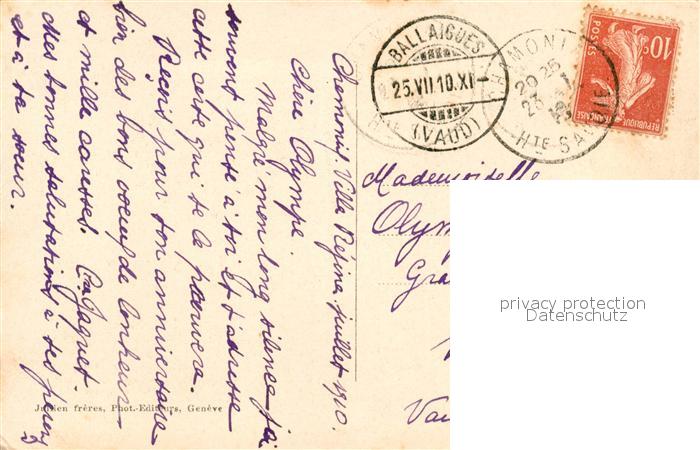 Chamonix, Villa Réjane, juillet 1910.
Chère Olympe.
Malgré mon long silence j'ai
souvent pensé à toi et t'adresse
cette carte qui te le prouvera.
Reçois pour ton anniversaire
bien des bons voeux de bonheur
et mille caresses. Jaquet.
mes bonnes salutations à tes parents
et à ta soeur.
Mademoiselle
Olym
Gra
Vau
BALLAIGUES
25.VII.10.XI-
(VAUD)
CHAMONIX
20 25
HTE SAVOIE
10c
POSTES
REPUBLIQUE FRANÇAISE
Jullien frères, Phot.-Editeurs, Genève
privacy protection
Datenschutz